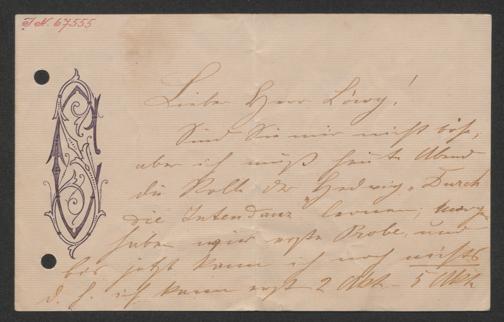 I.N. 67555
Lieber Herr Löwy!
Sind Sie mir nicht bös,
aber ich muß heute Abend
die Rolle der Hedwig „Durch
die Intendanz" lernen; morg.
haben wir erste Probe, und
bis jetzt kann ich noch nichts
d. h. ich kann erst 2 Akt - 5 Akt